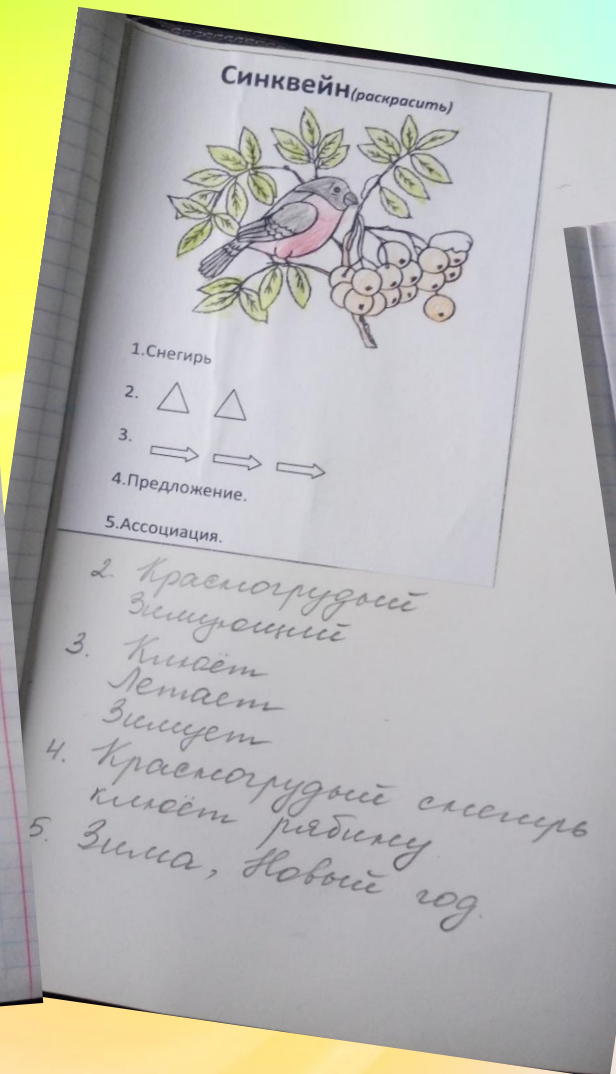 Синквейн(раскрасить)
1.Снегирь
2.
3.
4.Предложение.
5.Ассоциация.
2. Красногрудый
Зимующий
3. Клюёт
Летает
Зимует
4. Красногрудый снегирь
клюёт рябину
5. Зима, Новый год.